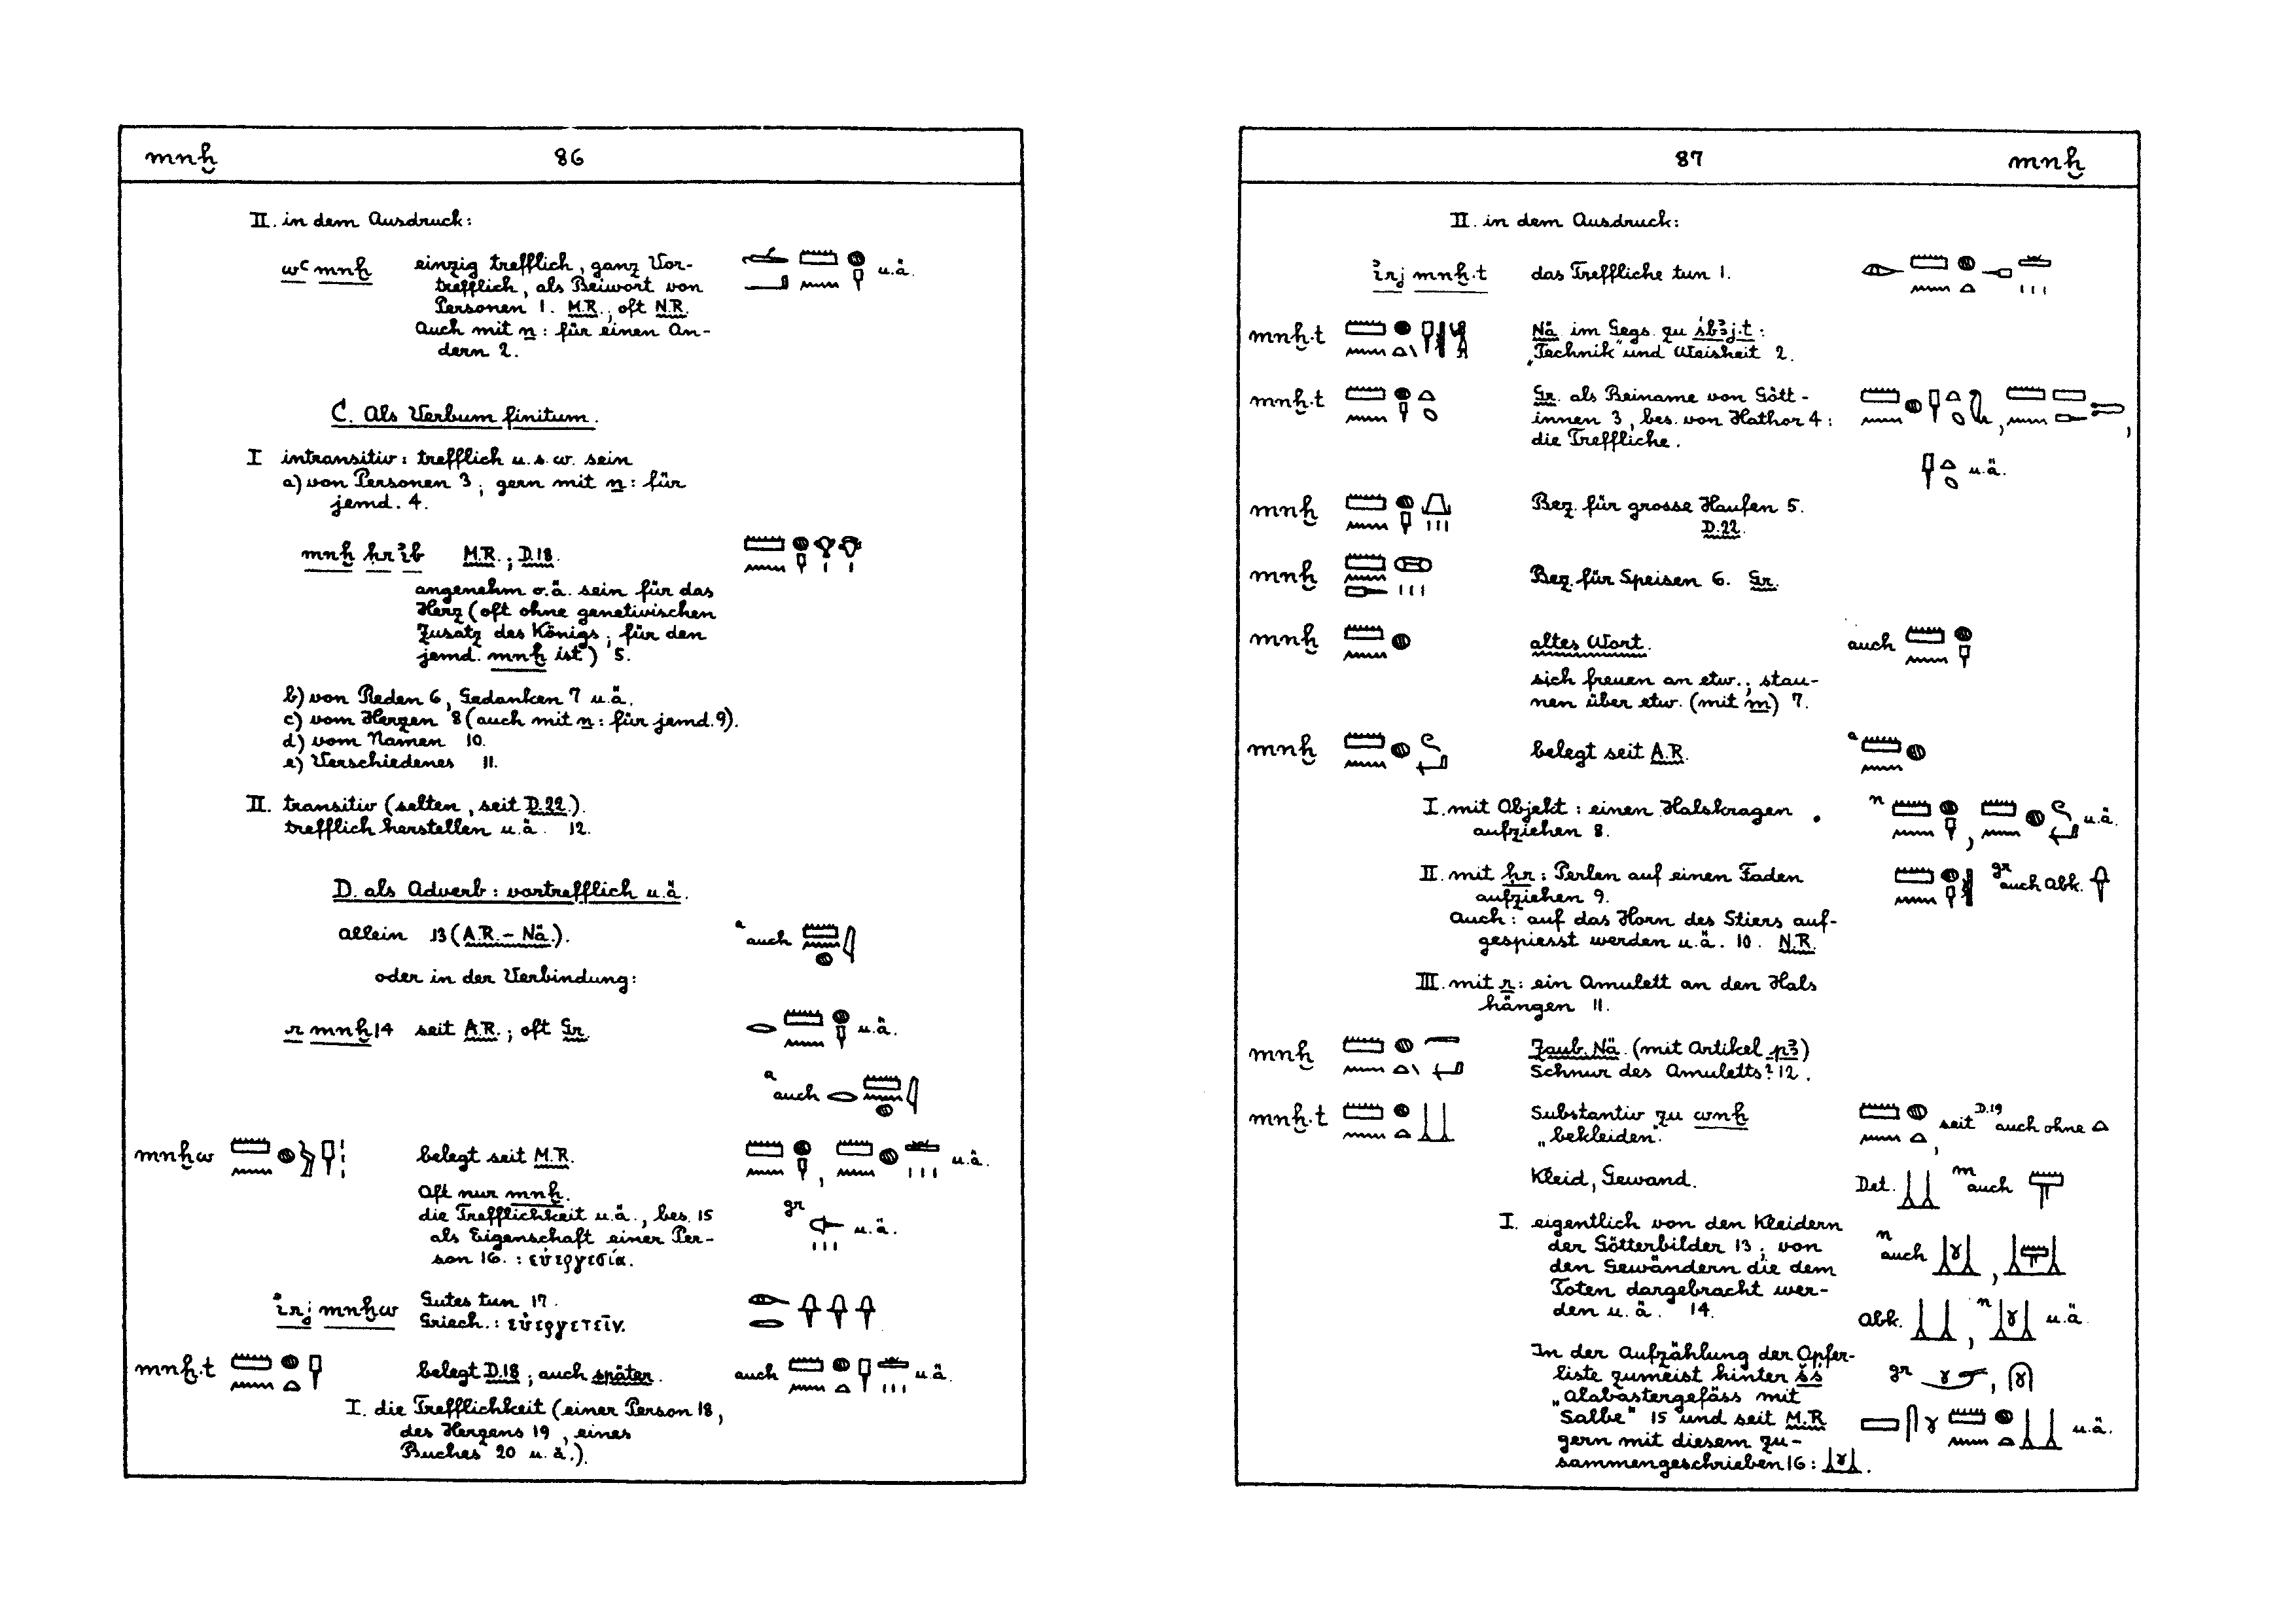 mnḫ 86
II. in dem Ausdruck:
wꜥ mnḫ einzig trefflich, ganz Vor-
trefflich, als Beiwort von
Personen 1. M.R., oft N.R.
Auch mit n: für einen An-
dern 2.
u.ä.
C. Als Verbum finitum.
I intransitiv: trefflich u.s.w. sein
a) von Personen 3; gern mit n: für
jemd. 4.
mnḫ ḥr ỉb M.R.; D.18.
angenehm o.ä. sein für das
Herz (oft ohne genetivischen
Zusatz des Königs, für den
jemd. mnḫ ist) 5.
b) von Reden 6, Gedanken 7 u.ä.
c) vom Herzen 8 (auch mit n: für jemd. 9).
d) vom Namen 10.
e) Verschiedenes 11.
II. transitiv (selten, seit D.22.).
trefflich herstellen u.ä. 12.
D. als Adverb: vortrefflich u.ä.
allein 13 (A.R.-Nä.). a auch
oder in der Verbindung:
r mnḫ 14 seit A.R.; oft Gr. u.ä.
a auch
mnḫw belegt seit M.R. , u.ä.
Oft nur mnḫ.
die Trefflichkeit u.ä., bes. 15
als Eigenschaft einer Per-
son 16. : εὐεργεσία.
gr u.ä.
ỉrj mnḫw Gutes tun 17.
Griech.: εὐεργετεῖν.
mnḫ.t belegt D.18; auch später. auch u.ä.
I. die Trefflichkeit (einer Person 18,
des Herzens 19, eines
Buches 20 u.ä.).
87 mnḫ
II. in dem Ausdruck:
ỉrj mnḫ.t das Treffliche tun 1.
mnḫ.t Nä im Gegs. zu śbꜣj.t:
„Technik" und Weisheit 2.
mnḫ.t Gr. als Beiname von Gött-
innen 3, bes. von Hathor 4:
die Treffliche.
u.ä.
mnḫ Bez. für grosse Haufen 5.
D.22.
mnḫ Bez. für Speisen 6. Gr.
mnḫ altes Wort. auch
sich freuen an etw.; stau-
nen über etw. (mit m) 7.
mnḫ belegt seit A.R. a
I. mit Objekt: einen Halskragen
aufziehen 8.
n , u.ä.
II. mit ḥr: Perlen auf einen Faden
aufziehen 9.
gr auch Abk.
Auch: auf das Horn des Stiers auf-
gespiesst werden u.ä. 10. N.R.
III. mit r: ein Amulett an den Hals
hängen 11.
mnḫ Zaub. Nä. (mit Artikel pꜣ)
Schnur des Amuletts? 12.
mnḫ.t Substantiv zu wnḫ
„bekleiden".
, seit D.19 auch ohne
Kleid, Gewand. Det. m auch
I. eigentlich von den Kleidern
der Götterbilder 13; von
den Gewändern die dem
Toten dargebracht wer-
den u.ä. 14.
n auch ,
Abk. , n u.ä.
In der Aufzählung der Opfer-
liste zumeist hinter šś
„Alabastergefäss mit
Salbe" 15 und seit M.R
gern mit diesem zu-
sammengeschrieben 16: .
gr ,
u.ä.